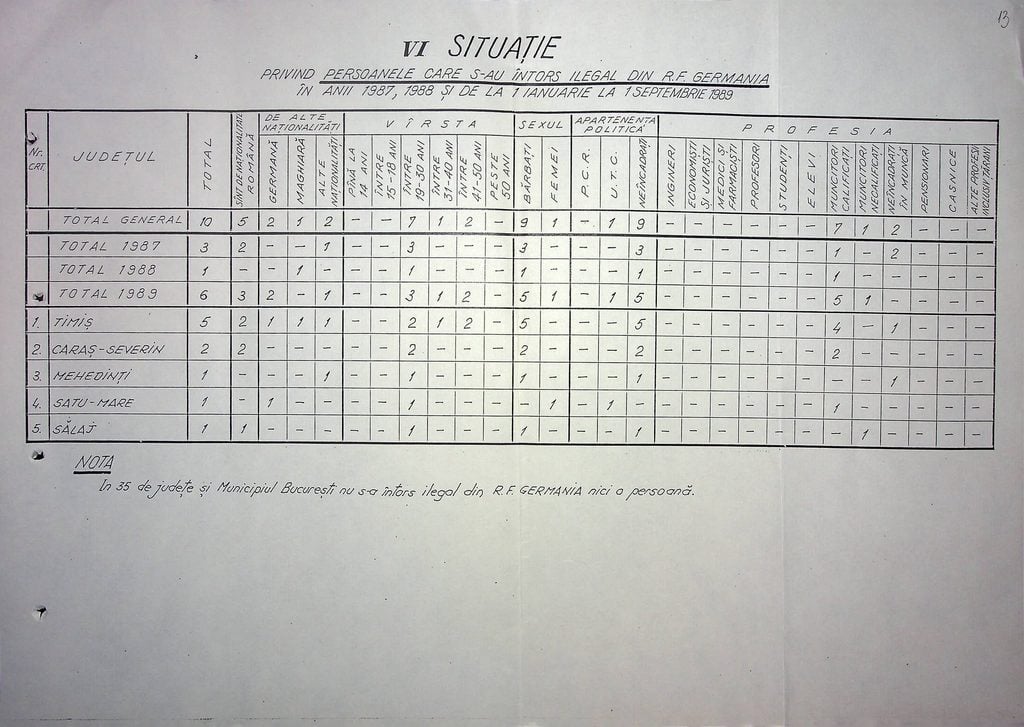 13
VI SITUAȚIE
PRIVIND PERSOANELE CARE S-AU ÎNTORS ILEGAL DIN R.F. GERMANIA
ÎN ANII 1987, 1988 ȘI DE LA 1 IANUARIE LA 1 SEPTEMBRIE 1989
Nr. CRT. JUDEȚUL TOTAL SÎNT DE NAȚIONALITATE ROMÂNĂ DE ALTE NAȚIONALITĂȚI GERMANĂ MAGHIARĂ ALTE NAȚIONALITĂȚI VÎRSTA PÎNĂ LA 14 ANI ÎNTRE 15-18 ANI ÎNTRE 19-30 ANI ÎNTRE 31-40 ANI ÎNTRE 41-50 ANI PESTE 50 ANI SEXUL BĂRBAȚI FEMEI APARTENENȚA POLITICĂ P.C.R. U.T.C. NEÎNCADRAȚI PROFESIA INGINERI ECONOMIȘTI ȘI JURIȘTI MEDICI ȘI FARMACIȘTI PROFESORI STUDENȚI ELEVI MUNCITORI CALIFICAȚI MUNCITORI NECALIFICAȚI NEÎNCADRAȚI ÎN MUNCĂ PENSIONARI CASNICE ALTE PROFESII INCLUSIV ȚĂRANI
TOTAL GENERAL 10 5 2 1 2 — — 7 1 2 — 9 1 — 1 9 — — — — — — 7 1 2 — — —
TOTAL 1987 3 2 — — 1 — — 3 — — — 3 — — — 3 — — — — — — 1 — 2 — — —
TOTAL 1988 1 — — 1 — — — 1 — — — 1 — — — 1 — — — — — — 1 — — — — —
TOTAL 1989 6 3 2 — 1 — — 3 1 2 — 5 1 — 1 5 — — — — — — 5 1 — — — —
1. TIMIȘ 5 2 1 1 1 — — 2 1 2 — 5 — — — 5 — — — — — — 4 — 1 — — —
2. CARAȘ-SEVERIN 2 2 — — — — — 2 — — — 2 — — — 2 — — — — — — 2 — — — — —
3. MEHEDINȚI 1 — — — 1 — — 1 — — — 1 — — — 1 — — — — — — — — 1 — — —
4. SATU-MARE 1 — 1 — — — — 1 — — — — 1 — 1 — — — — — — — 1 — — — — —
5. SĂLAJ 1 1 — — — — — 1 — — — 1 — — — 1 — — — — — — — 1 — — — —
NOTA
In 35 de județe și Municipiul București nu s-a întors ilegal din R.F. GERMANIA nici o persoană.